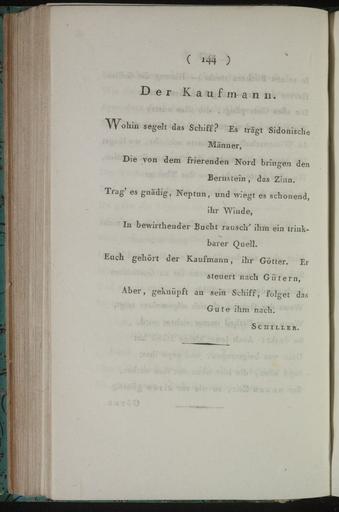 ( 144 )
Der Kaufmann.
Wohin segelt das Schiff? Es trägt Sidonische
Männer,
Die von dem frierenden Nord bringen den
Bernstein, das Zinn.
Trag' es gnädig, Neptun, und wiegt es schonend,
ihr Winde,
In bewirthender Bucht rausch' ihm ein trink-
barer Quell.
Euch gehört der Kaufmann, ihr Götter. Er
steuert nach Gütern,
Aber, geknüpft an sein Schiff, folget das
Gute ihm nach.
SCHILLER.